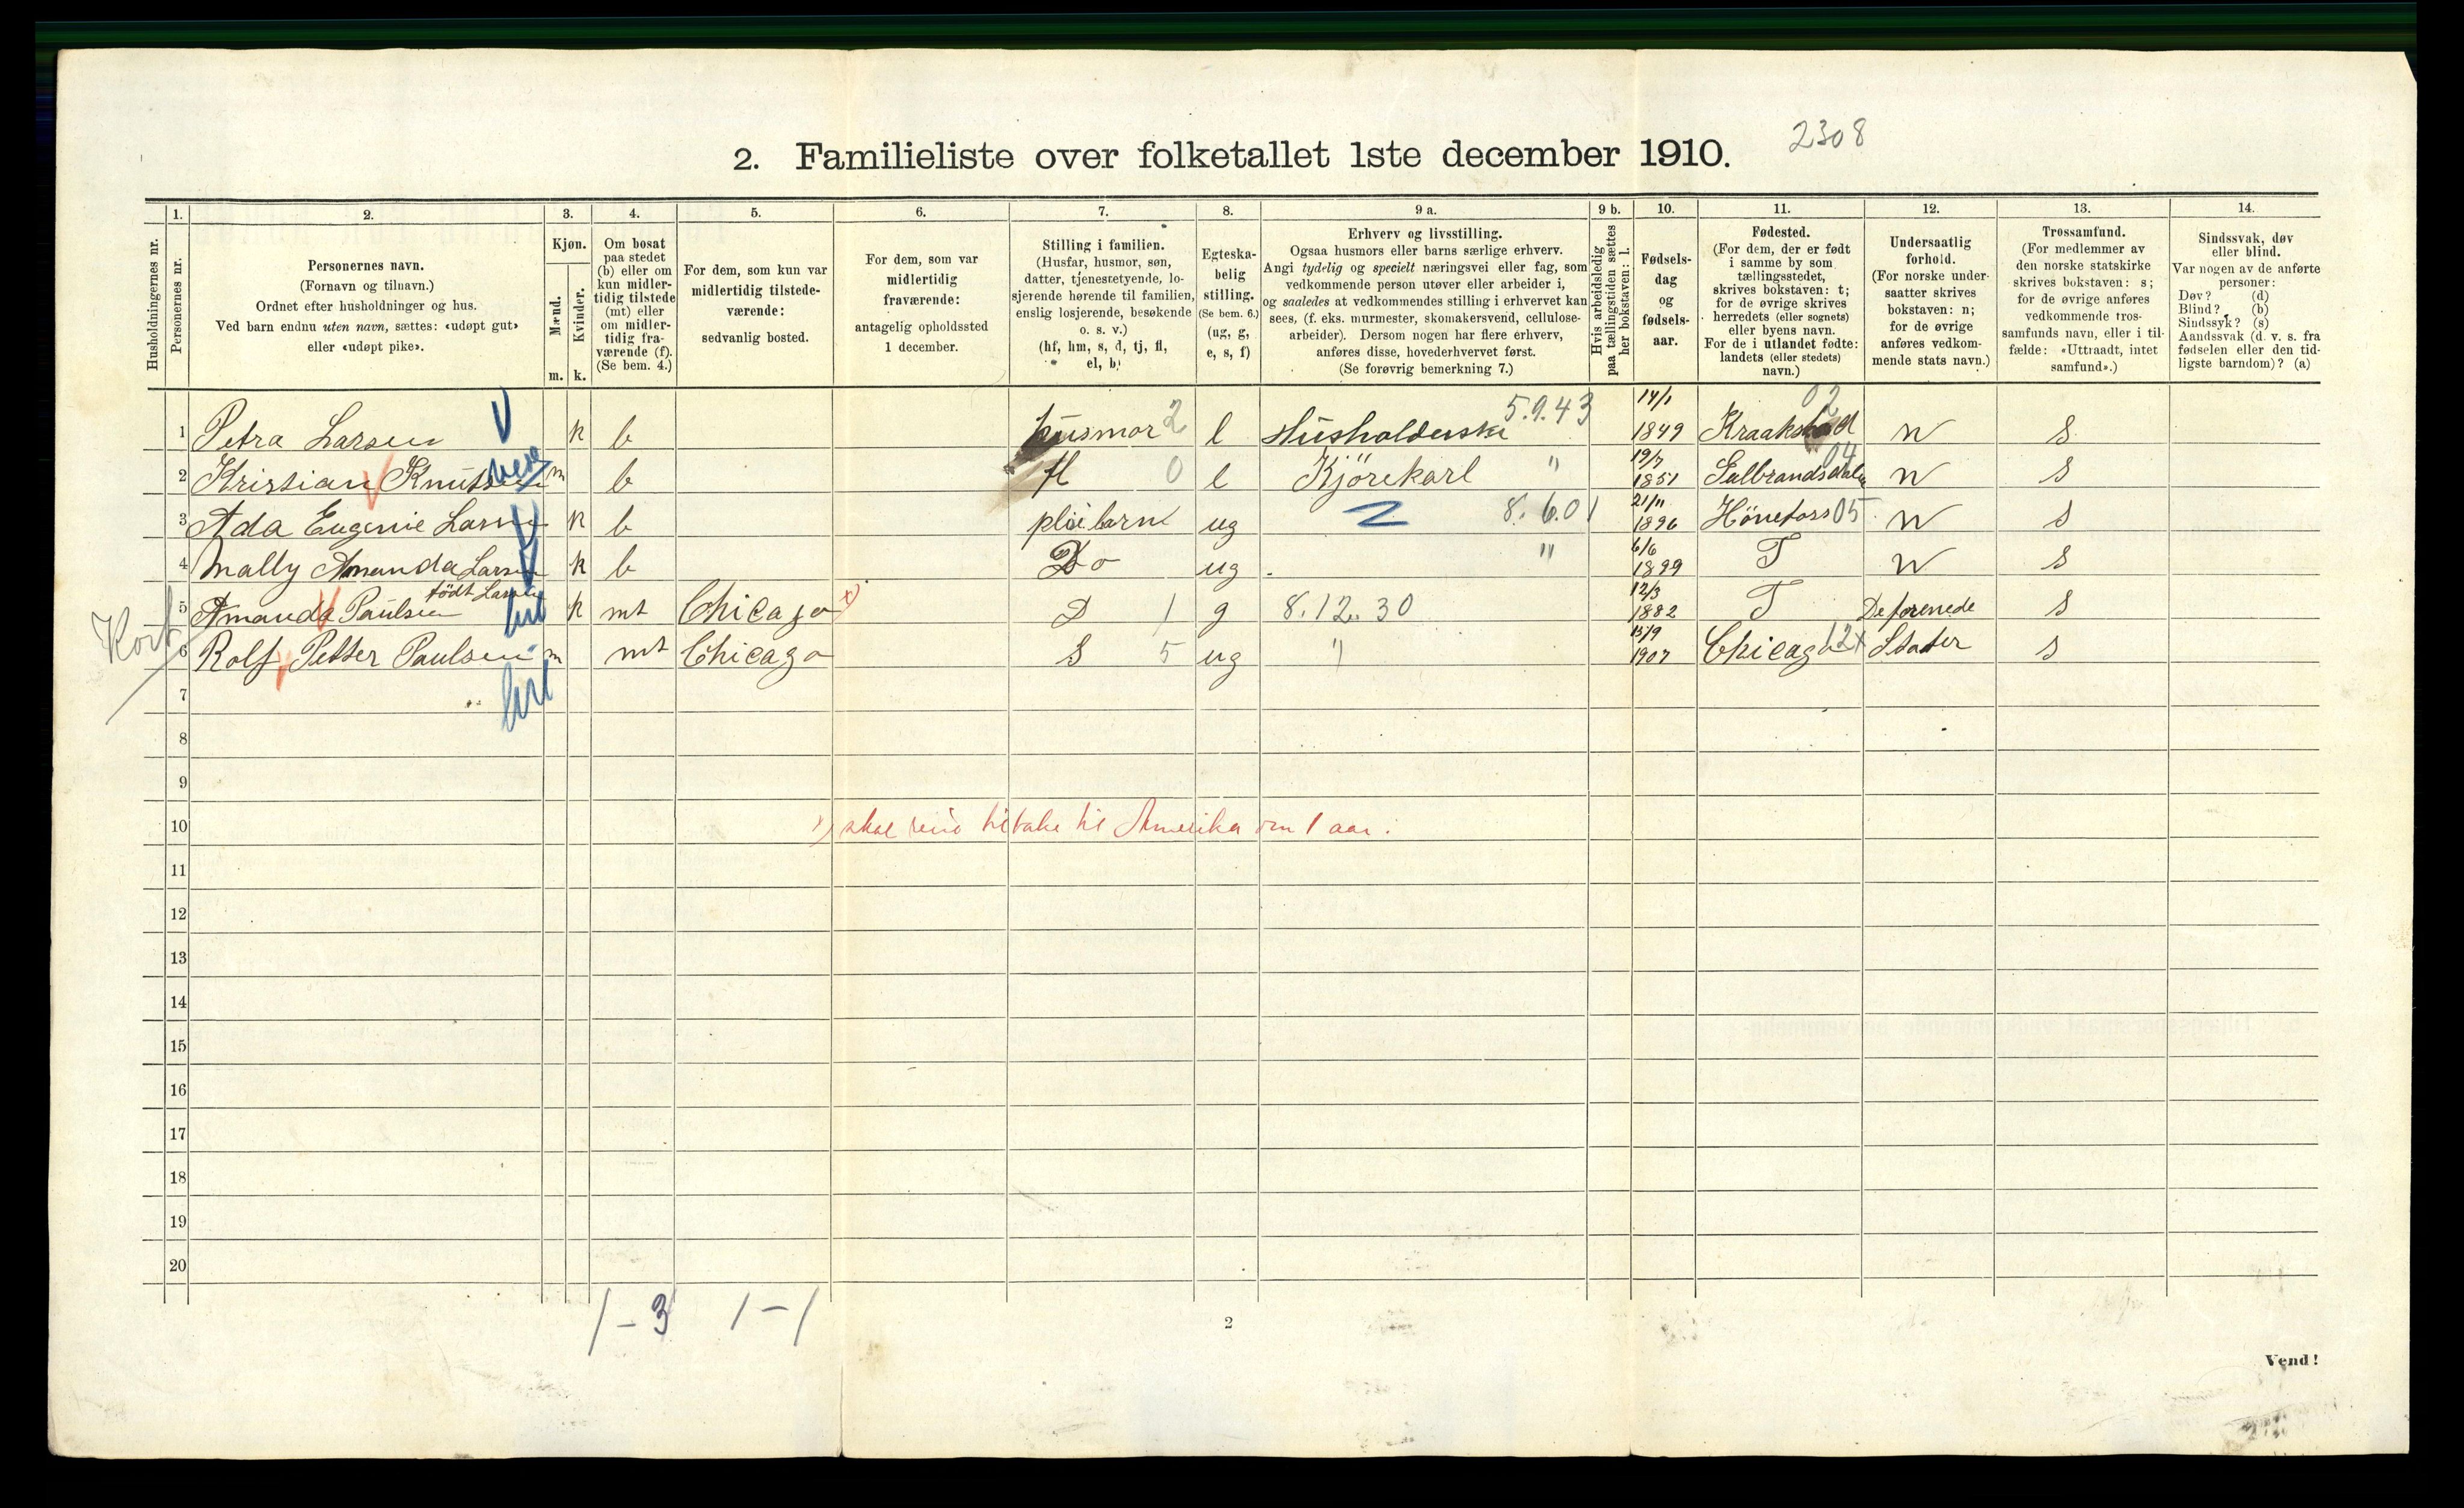 2308
2. Familieliste over folketallet 1ste december 1910.
Husholdningernes nr.
1.
Personernes nr.
2.
Personernes navn.
(Fornavn og tilnavn.)
Ordnet efter husholdninger og hus.
Ved barn endnu uten navn, sættes: «udøpt gut»
eller «udøpt pike».
3.
Kjøn.
Mænd.
Kvinder.
m. k.
4.
Om bosat
paa stedet
(b) eller om
kun midler-
tidig tilstede
(mt) eller
om midler-
tidig fra-
værende (f).
(Se bem. 4.)
5.
For dem, som kun var
midlertidig tilstede-
værende:
sedvanlig bosted.
6.
For dem, som var
midlertidig
fraværende:
antagelig opholdssted
1 december.
7.
Stilling i familien.
(Husfar, husmor, søn,
datter, tjenestetyende, lo-
sjerende hørende til familien,
enslig losjerende, besøkende
o. s. v.)
(hf, hm, s, d, tj, fl,
el, b)
8.
Egteska-
belig
stilling.
(Se bem. 6.)
(ug, g,
e, s, f)
9 a.
Erhverv og livsstilling.
Ogsaa husmors eller barns særlige erhverv.
Angi tydelig og specielt næringsvei eller fag, som
vedkommende person utøver eller arbeider i,
og saaledes at vedkommendes stilling i erhvervet kan
sees, (f. eks. murmester, skomakersvend, cellulose-
arbeider). Dersom nogen har flere erhverv,
anføres disse, hovederhvervet først.
(Se forøvrig bemerkning 7.)
9 b.
Hvis arbeidsledig
paa tællingstiden sættes
her bokstaven: l.
10.
Fødsels-
dag
og
fødsels-
aar.
11.
Fødested.
(For dem, der er født
i samme by som
tællingsstedet,
skrives bokstaven: t;
for de øvrige skrives
herredets (eller sognets)
eller byens navn.
For de i utlandet fødte:
landets (eller stedets)
navn.)
12.
Undersaatlig
forhold.
(For norske under-
saatter skrives
bokstaven: n;
for de øvrige
anføres vedkom-
mende stats navn.)
13.
Trossamfund.
(For medlemmer av
den norske statskirke
skrives bokstaven: s;
for de øvrige anføres
vedkommende tros-
samfunds navn, eller i til-
fælde: «Uttraadt, intet
samfund».)
14.
Sindssvak, døv
eller blind.
Var nogen av de anførte
personer:
Døv? (d)
Blind? (b)
Sindssyk? (s)
Aandssvak (d. v. s. fra
fødselen eller den tid-
ligste barndom)? (a)
1 Petra Larsen k b husmor 2 e Husholderske 5.9.43 14/1 1849 Kraakstad 02 n s
2 Kristian Knutsen m b fl 0 e Kjörekarl " 19/7 1851 04 n s
3 Ada Eugenie Larsen k b pleiebarn ug 8.6.01 21/11 1896 Hönefoss 05 n s
4 Mally Amanda Larsen k b Do ug " 6/6 1899 T n s
5 Amanda Paulsen födt Larsen k mt Chicago x) D 1 g 8.12.30 12/3 1882 T De forenede s
6 Rolf Petter Paulsen m mt Chicago S 5 ug " 13/9 1907 Chicago 12x Stater s
7
8
9
10 x) skal reise tilbake til Amerika om 1 aar.
11
12
13
14
15
16
17
18
19
20
1 - 3 1 - 1
2
Vend!